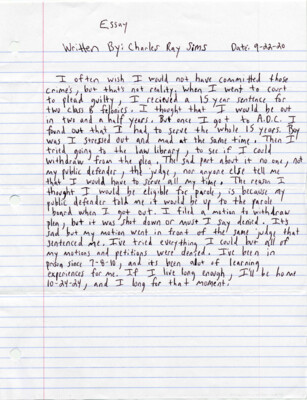 Essay
Written By: Charles Ray Sims Date: 9-22-20
I often wish I would not have committed those
crime's, but that's not reality. When I went to court
to plead guilty, I recieved a 15 year sentence for
two class B felonies. I thought that I would be out
in two and a half years. But once I got to A.D.C. I
found out that I had to serve the whole 15 years. Boy
was I stressed out and mad at the same time. Then I
tried going to the law library, to see if I could
withdraw from the plea. The sad part about it no one, not
my public defender, the judge, nor anyone else tell me
that I would have to serve all my time. The reason I
thought I would be eligible for parole, is because my
public defender told me it would be up to the parole
board when I got out. I filed a motion to withdraw
plea, but it was shot down or must I say denied. It's
sad but my motion went in front of the same judge that
sentenced me. I've tried everything I could but all of
my motions and petitions were denied. I've been in
prison since 7-8-10, and its been alot of learning
experiences for me. If I live long enough, I'll be home
10-24-24, and I long for that moment.